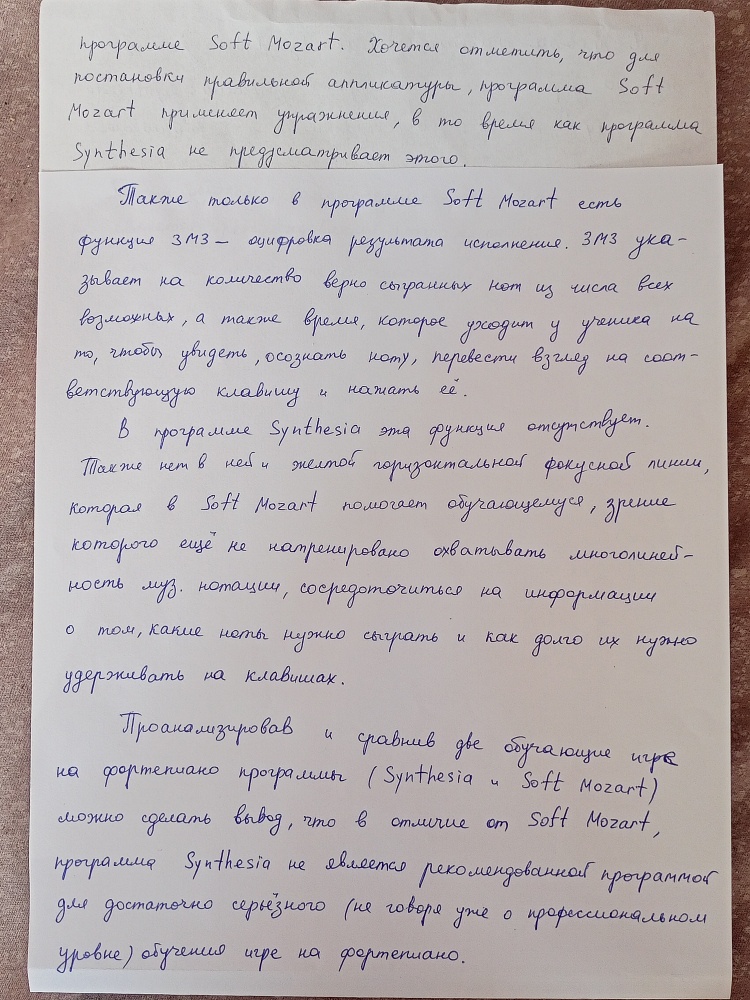 программе Soft Mozart. Хочется отметить, что для
постановки правильной аппликатуры, программа Soft
Mozart применяет упражнения, в то время как программа
Synthesia не предусматривает этого.
Также только в программе Soft Mozart есть
функция ЗМЗ – оцифровка результата исполнения. ЗМЗ ука-
зывает на количество верно сыгранных нот из числа всех
возможных, а также время, которое уходит у ученика на
то, чтобы увидеть, осознать ноту, перевести взгляд на соот-
ветствующую клавишу и нажать её.
В программе Synthesia эта функция отсутствует.
Также нет в ней и желтой горизонтальной фокусной линии,
которая в Soft Mozart помогает обучающемуся, зрение
которого ещё не натренировано охватывать многолиней-
ность муз. нотации, сосредоточиться на информации
о том, какие ноты нужно сыграть и как долго их нужно
удерживать на клавишах.
Проанализировав и сравнив две обучающие игре
на фортепиано программы (Synthesia и Soft Mozart)
можно сделать вывод, что в отличие от Soft Mozart,
программа Synthesia не является рекомендованной программой
для достаточно серьёзного (не говоря уже о профессиональном
уровне) обучения игре на фортепиано.